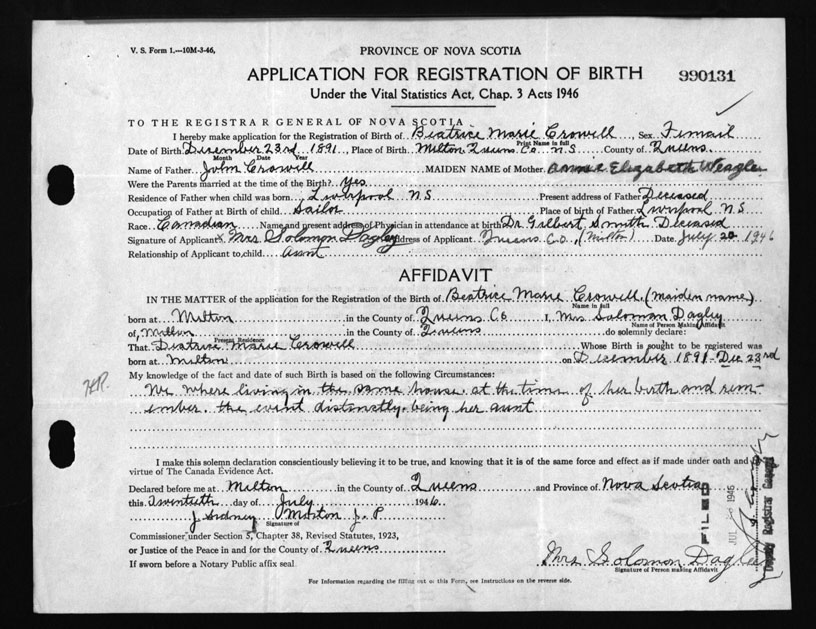 V. S. Form 1.—10M-3-46,
PROVINCE OF NOVA SCOTIA
APPLICATION FOR REGISTRATION OF BIRTH
990131
Under the Vital Statistics Act, Chap. 3 Acts 1946
TO THE REGISTRAR GENERAL OF NOVA SCOTIA
I hereby make application for the Registration of Birth of Beatrice Marie Crowell, Sex Fimail
Print Name in full
Date of Birth Disember 23rd 1891, Place of Birth Milton Queens Co N.S County of Queens
Month Date Year
Name of Father John Crowell MAIDEN NAME of Mother Annie Elizabeth Weagle
Were the Parents married at the time of the Birth? yes
Residence of Father when child was born Liverpool N S Present address of Father Deceased
Occupation of Father at Birth of child Sailor Place of birth of Father Liverpool N.S
Race Canadian Name and present address of Physician in attendance at birth Dr Gilbert Smith Deceased
Signature of Applicant x Mrs Solomon Dagley Address of Applicant Queens Co, (Milton) Date July 20 1946
Relationship of Applicant to child aunt
AFFIDAVIT
IN THE MATTER of the application for the Registration of the Birth of Beatrice Marie Crowell (maiden name)
Name in full
born at Milton in the County of Queens Co I, Mrs Soloman Dagley
Name of Person Making Affidavit
of, Milton in the County of Queens do solemnly declare:
Present Residence
That Beatrice Marie Crowell Whose Birth is sought to be registered was
born at Milton on Disember 1891 - Dec 23rd
My knowledge of the fact and date of such Birth is based on the following Circumstances:
We where living in the same house at the time of her birth and rem-
ember the event distinctly. being her aunt
I make this solemn declaration conscientiously believing it to be true, and knowing that it is of the same force and effect as if made under oath and
virtue of The Canada Evidence Act.
Declared before me at Milton in the County of Queens and Province of Nova Scotia
this twentieth day of July 1946
J Sidney Morton J. P
Signature of
Commissioner under Section 5, Chapter 38, Revised Statutes, 1923,
or Justice of the Peace in and for the County of Queens
If sworn before a Notary Public affix seal
Mrs Solomon Dagley
Signature of Person making Affidavit
For Information regarding the filling out of this Form, see Instructions on the reverse side.
FILED
1946
Deputy Registrar General